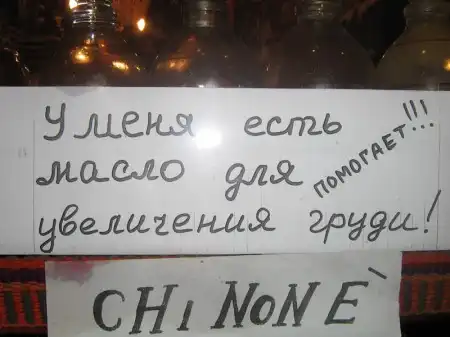 У меня есть
масло для
ПОМОГАЕТ!!!
увеличения груди!
CHI NON È